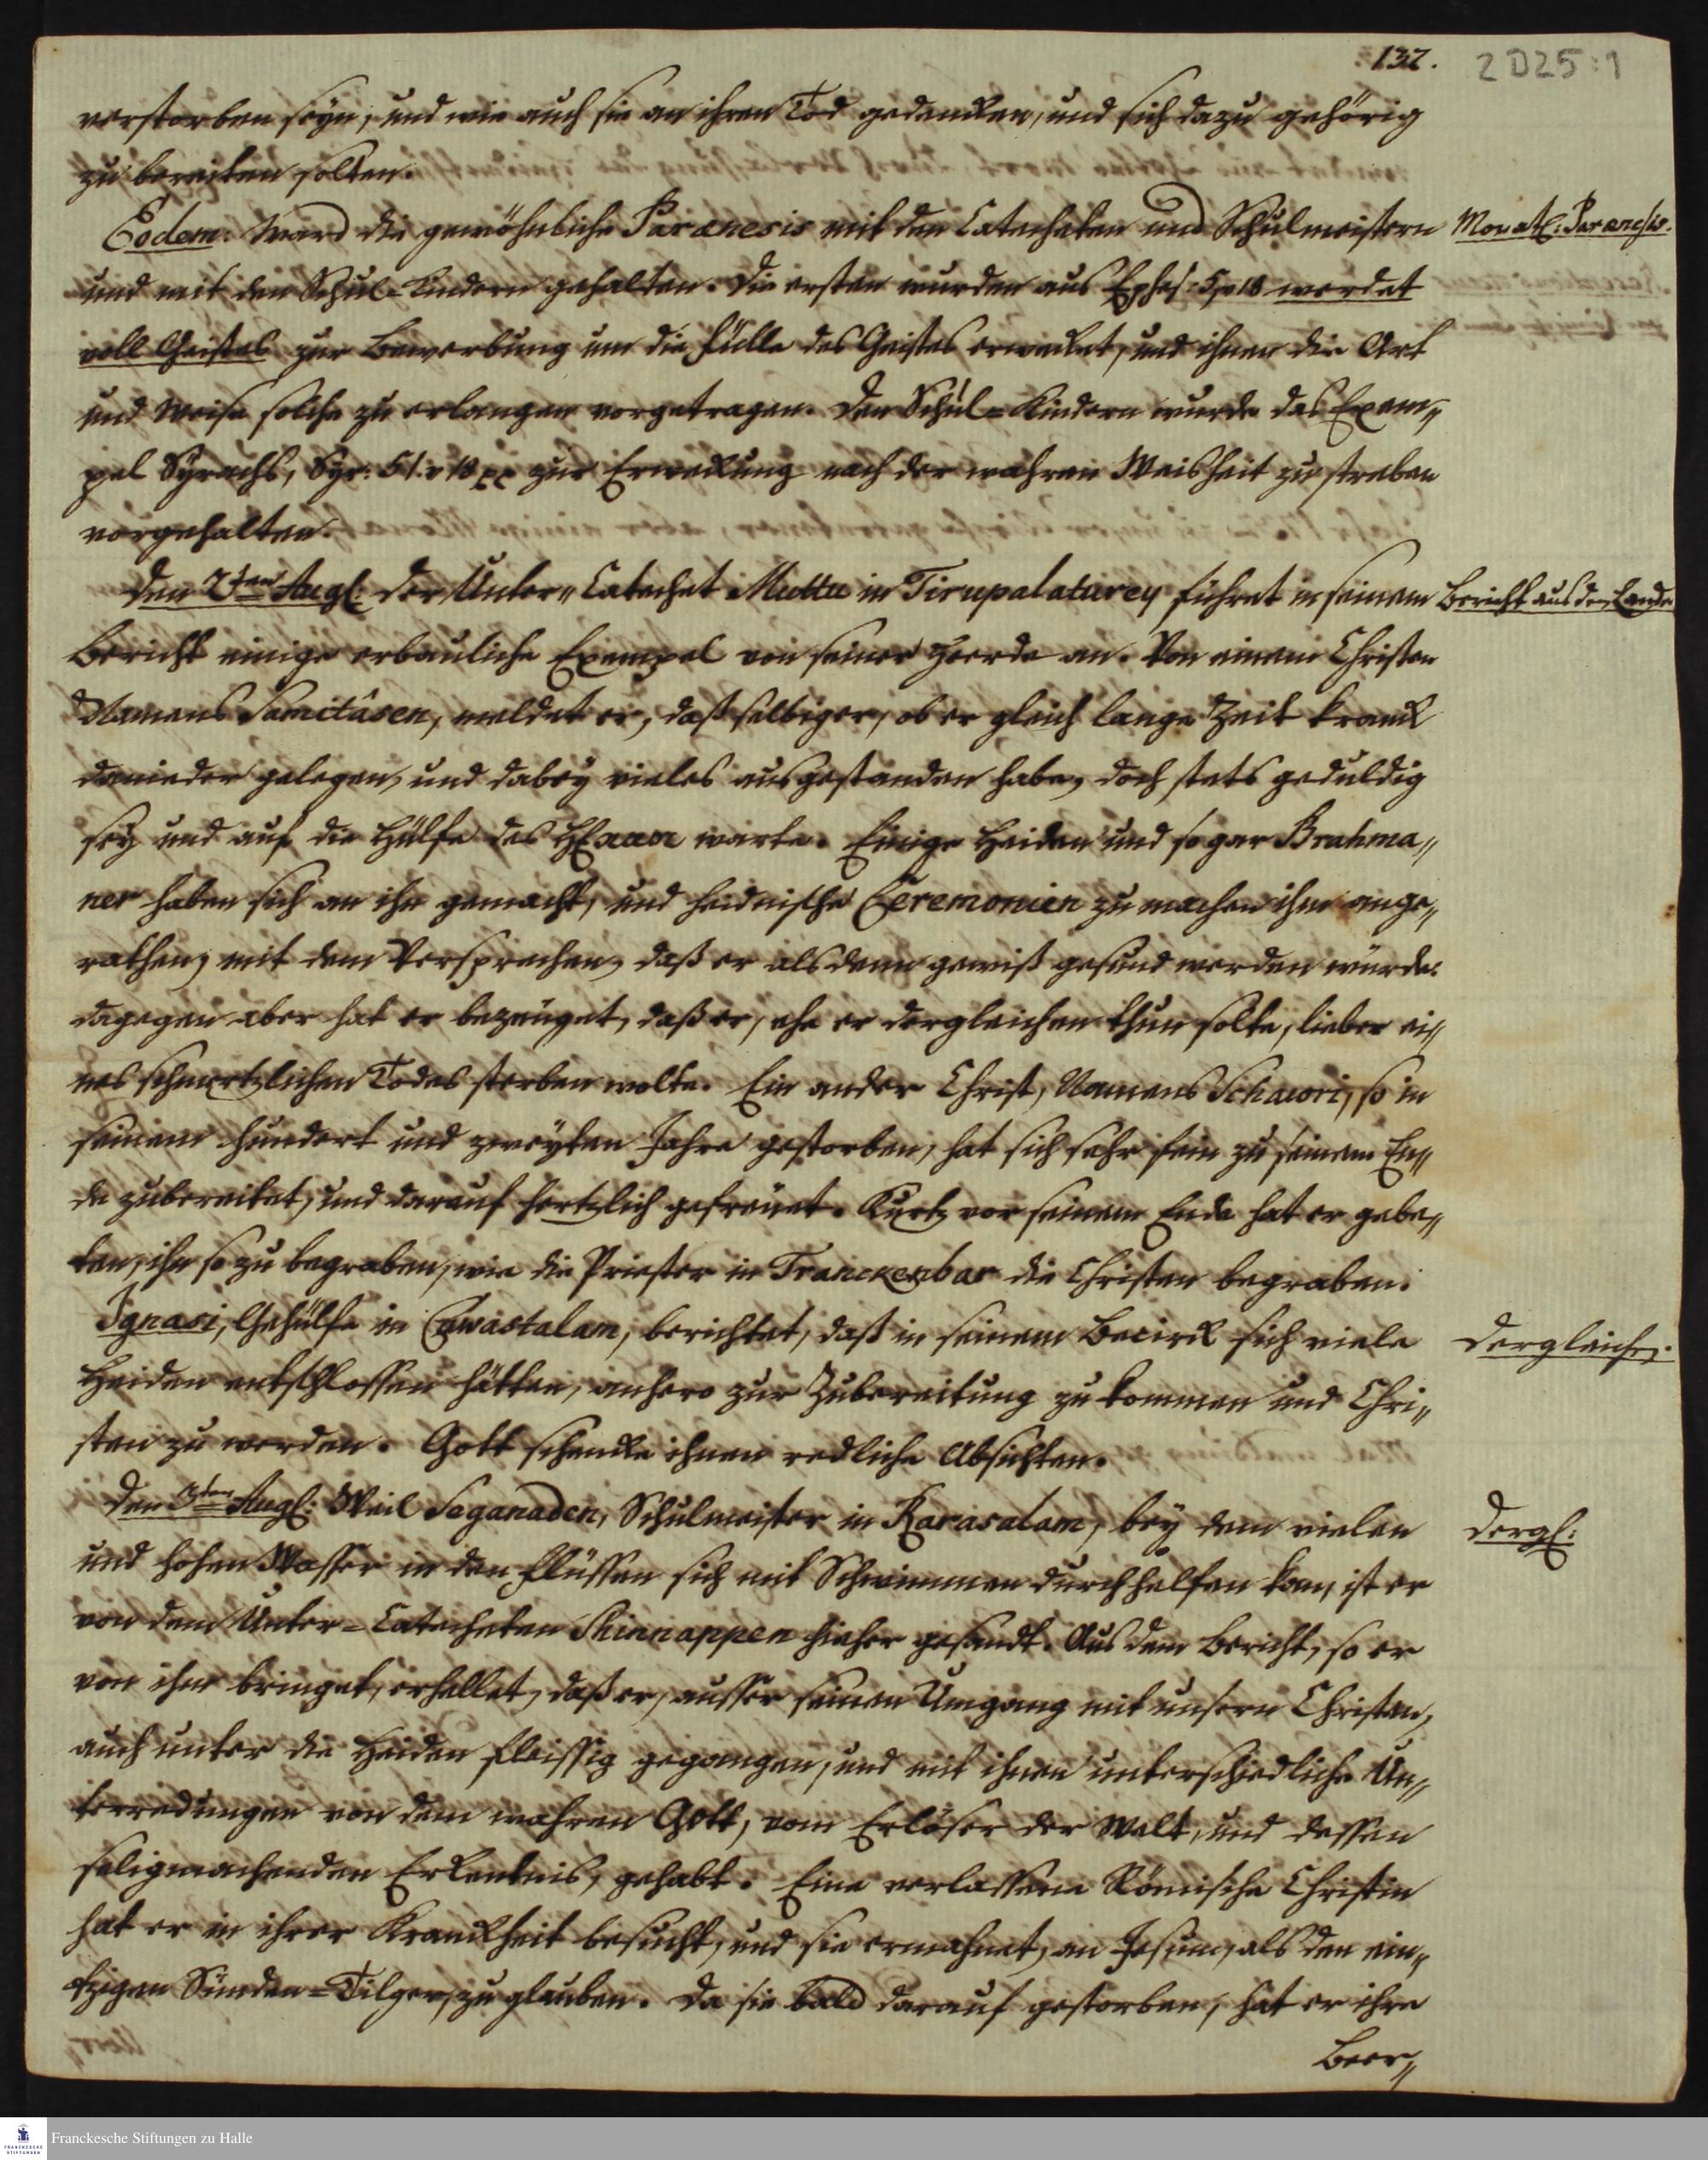 137.
2 D25:1
verstorben seyn, und wie auch sie an ihren Tod gedencken, und sich dazu gehörig
zu bereiten solten.
Eodem. Ward die gewöhnliche Paranesis mit den Catecheten und Schulmeistern
Monatl: Paranesis.
und mit den Schul-Kindern gehalten. Die ersten wurden aus Ephes: 5, v 18 werdet
voll Geistes zur Bewerbung um die Fülle des Geistes erwecket, und ihnen die Art
und Weise solche zu erlangen vorgetragen. Den Schul-Kindern wurde das Exem„
pel Syrachs, Syr: 51. v 18 zur Erweckung nach der wahren Weisheit zu streben
vorgehalten.
Den 2ten Aug: Der Unter„Catechet Muttu in Tirupalaturey führet in seinem
Bericht aus dem Lande
Bericht einige erbauliche Exempel von seiner Heerde an. Von einem Christen
Namens Samitâsen, meldet er, daß selbiger, ob er gleich lange Zeit kranck
danieder gelegen, und dabey vieles ausgestanden habe, doch stets geduldig
sey und auf die Hülfe des HErrn warte. Einige Heiden und so gar Brahma„
ner haben sich an ihn gemacht, und heidnische Ceremonien zu machen ihm ange„
rathen, mit dem Versprechen, daß er alsdenn gewiß gesund werden würde.
dagegen aber hat er bezeuget, daß er, ehe er dergleichen thun solte, lieber ei„
nes schmertzlichen Todes sterben wolte. Ein ander Christ, Namens Schauri, so in
seinem hundert und zweyten Jahre gestorben, hat sich sehr fein zu seinem En„
de zubereitet, und darauf hertzlich gefreuet. Kurtz vor seinem Ende hat er gebe„
ten, ihn so zu begraben, wie die Priester in Tranckenbar die Christen begraben.
Ignasi, Gehülfe in Cawastalam, berichtet, daß in seinem Bezirck sich viele
Dergleichen.
Heiden entschlossen hätten, anhero zur Zubereitung zu kommen und Chri„
sten zu werden. Gott schencke ihnen redliche Absichten.
Den 3ten Aug: Weil Seganaden, Schulmeister in Karasalam, bey dem vielen
Dergl:
und hohen Wasser in den Flüssen sich mit Schwimmen durchhelfen kan, ist er
von dem Unter-Catecheten Schinnappen hieher gesandt. Aus dem Bericht, so er
von ihm bringet, erhellet, daß er, ausser seinen Umgang mit unsern Christen,
auch unter die Heiden fleissig gegangen, und mit ihnen unterschiedliche Un„
terredungen von dem wahren Gott, vom Erlöser der Welt, und dessen
seligmachenden Erkentnis, gehabt. Eine verlassene Römische Christin
hat er in ihrer Kranckheit besucht, und sie ermahnet, an Jesum, als den ein„
tzigen Sünden-Tilger, zu glauben. Da sie bald darauf gestorben, hat er ihre
Beer„
Franckesche Stiftungen zu Halle